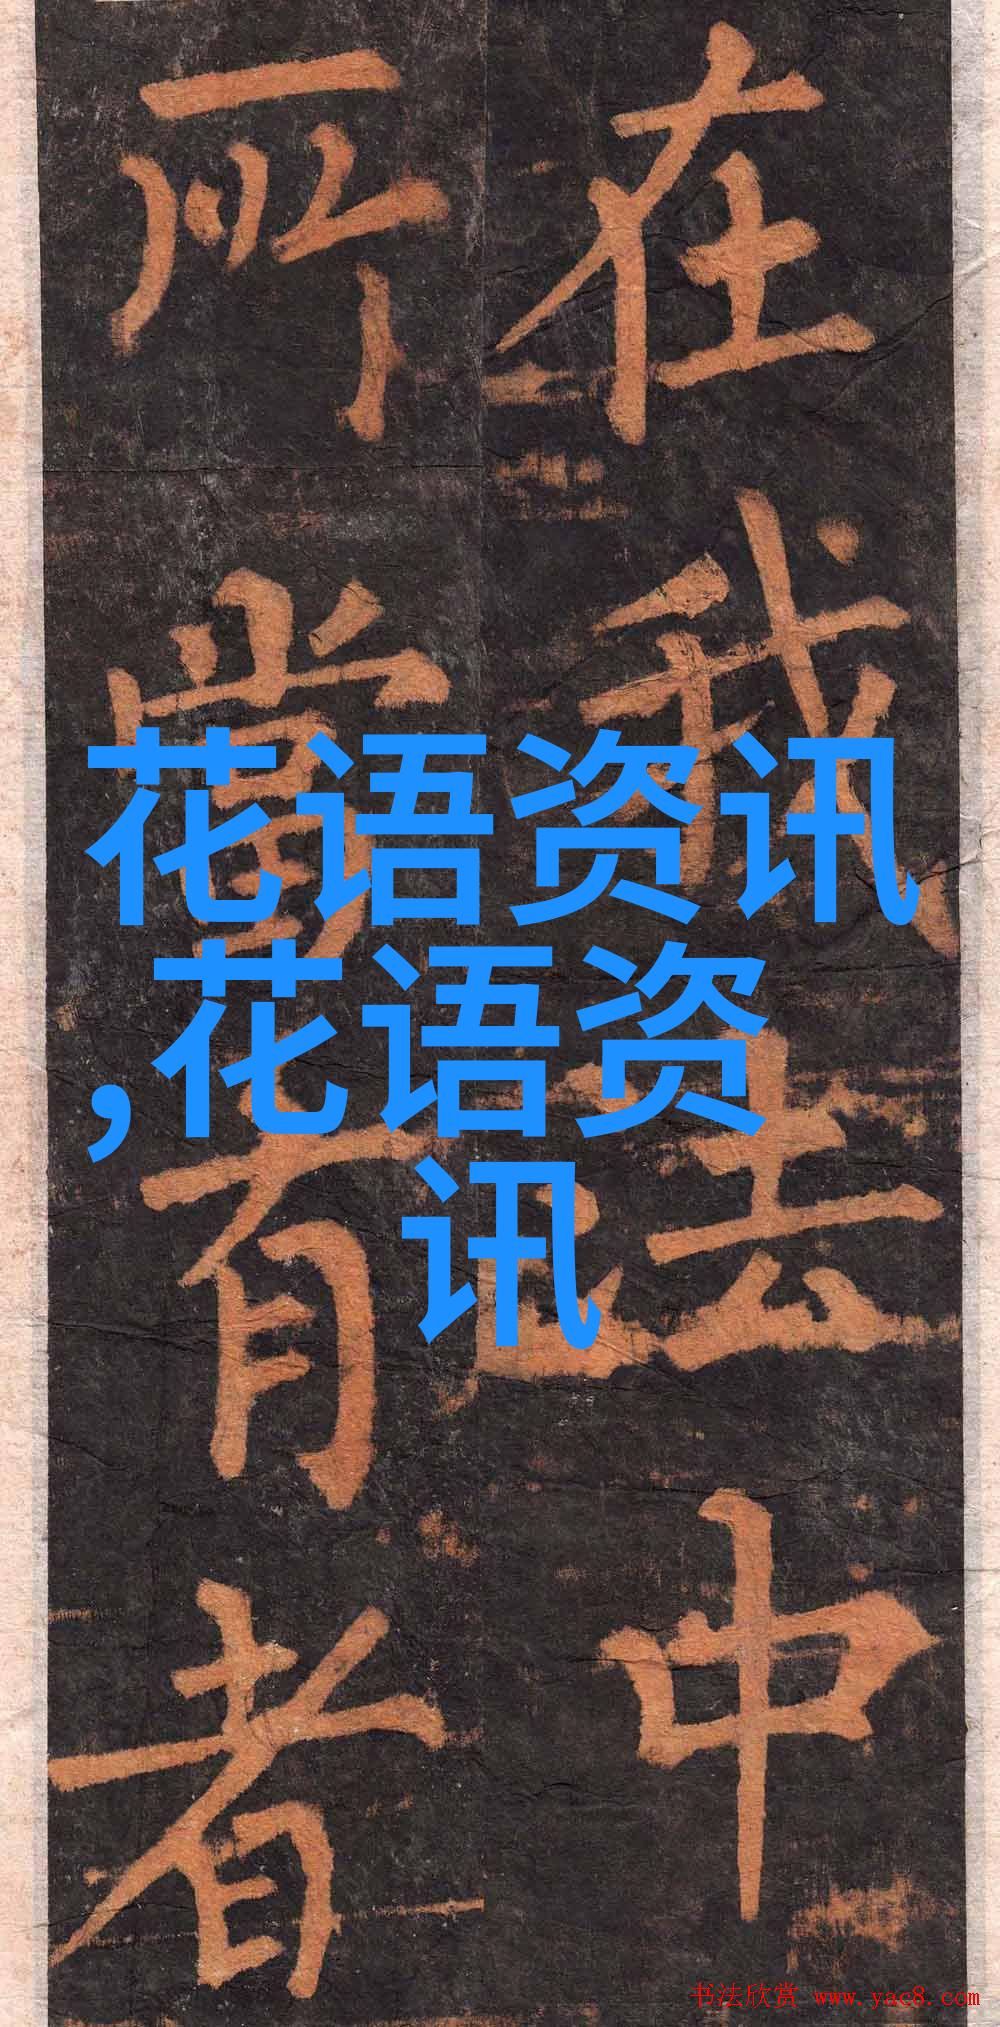 在我法中
所當有者
花语资讯
,花语资
讯
书法欣赏 www.yac8.com